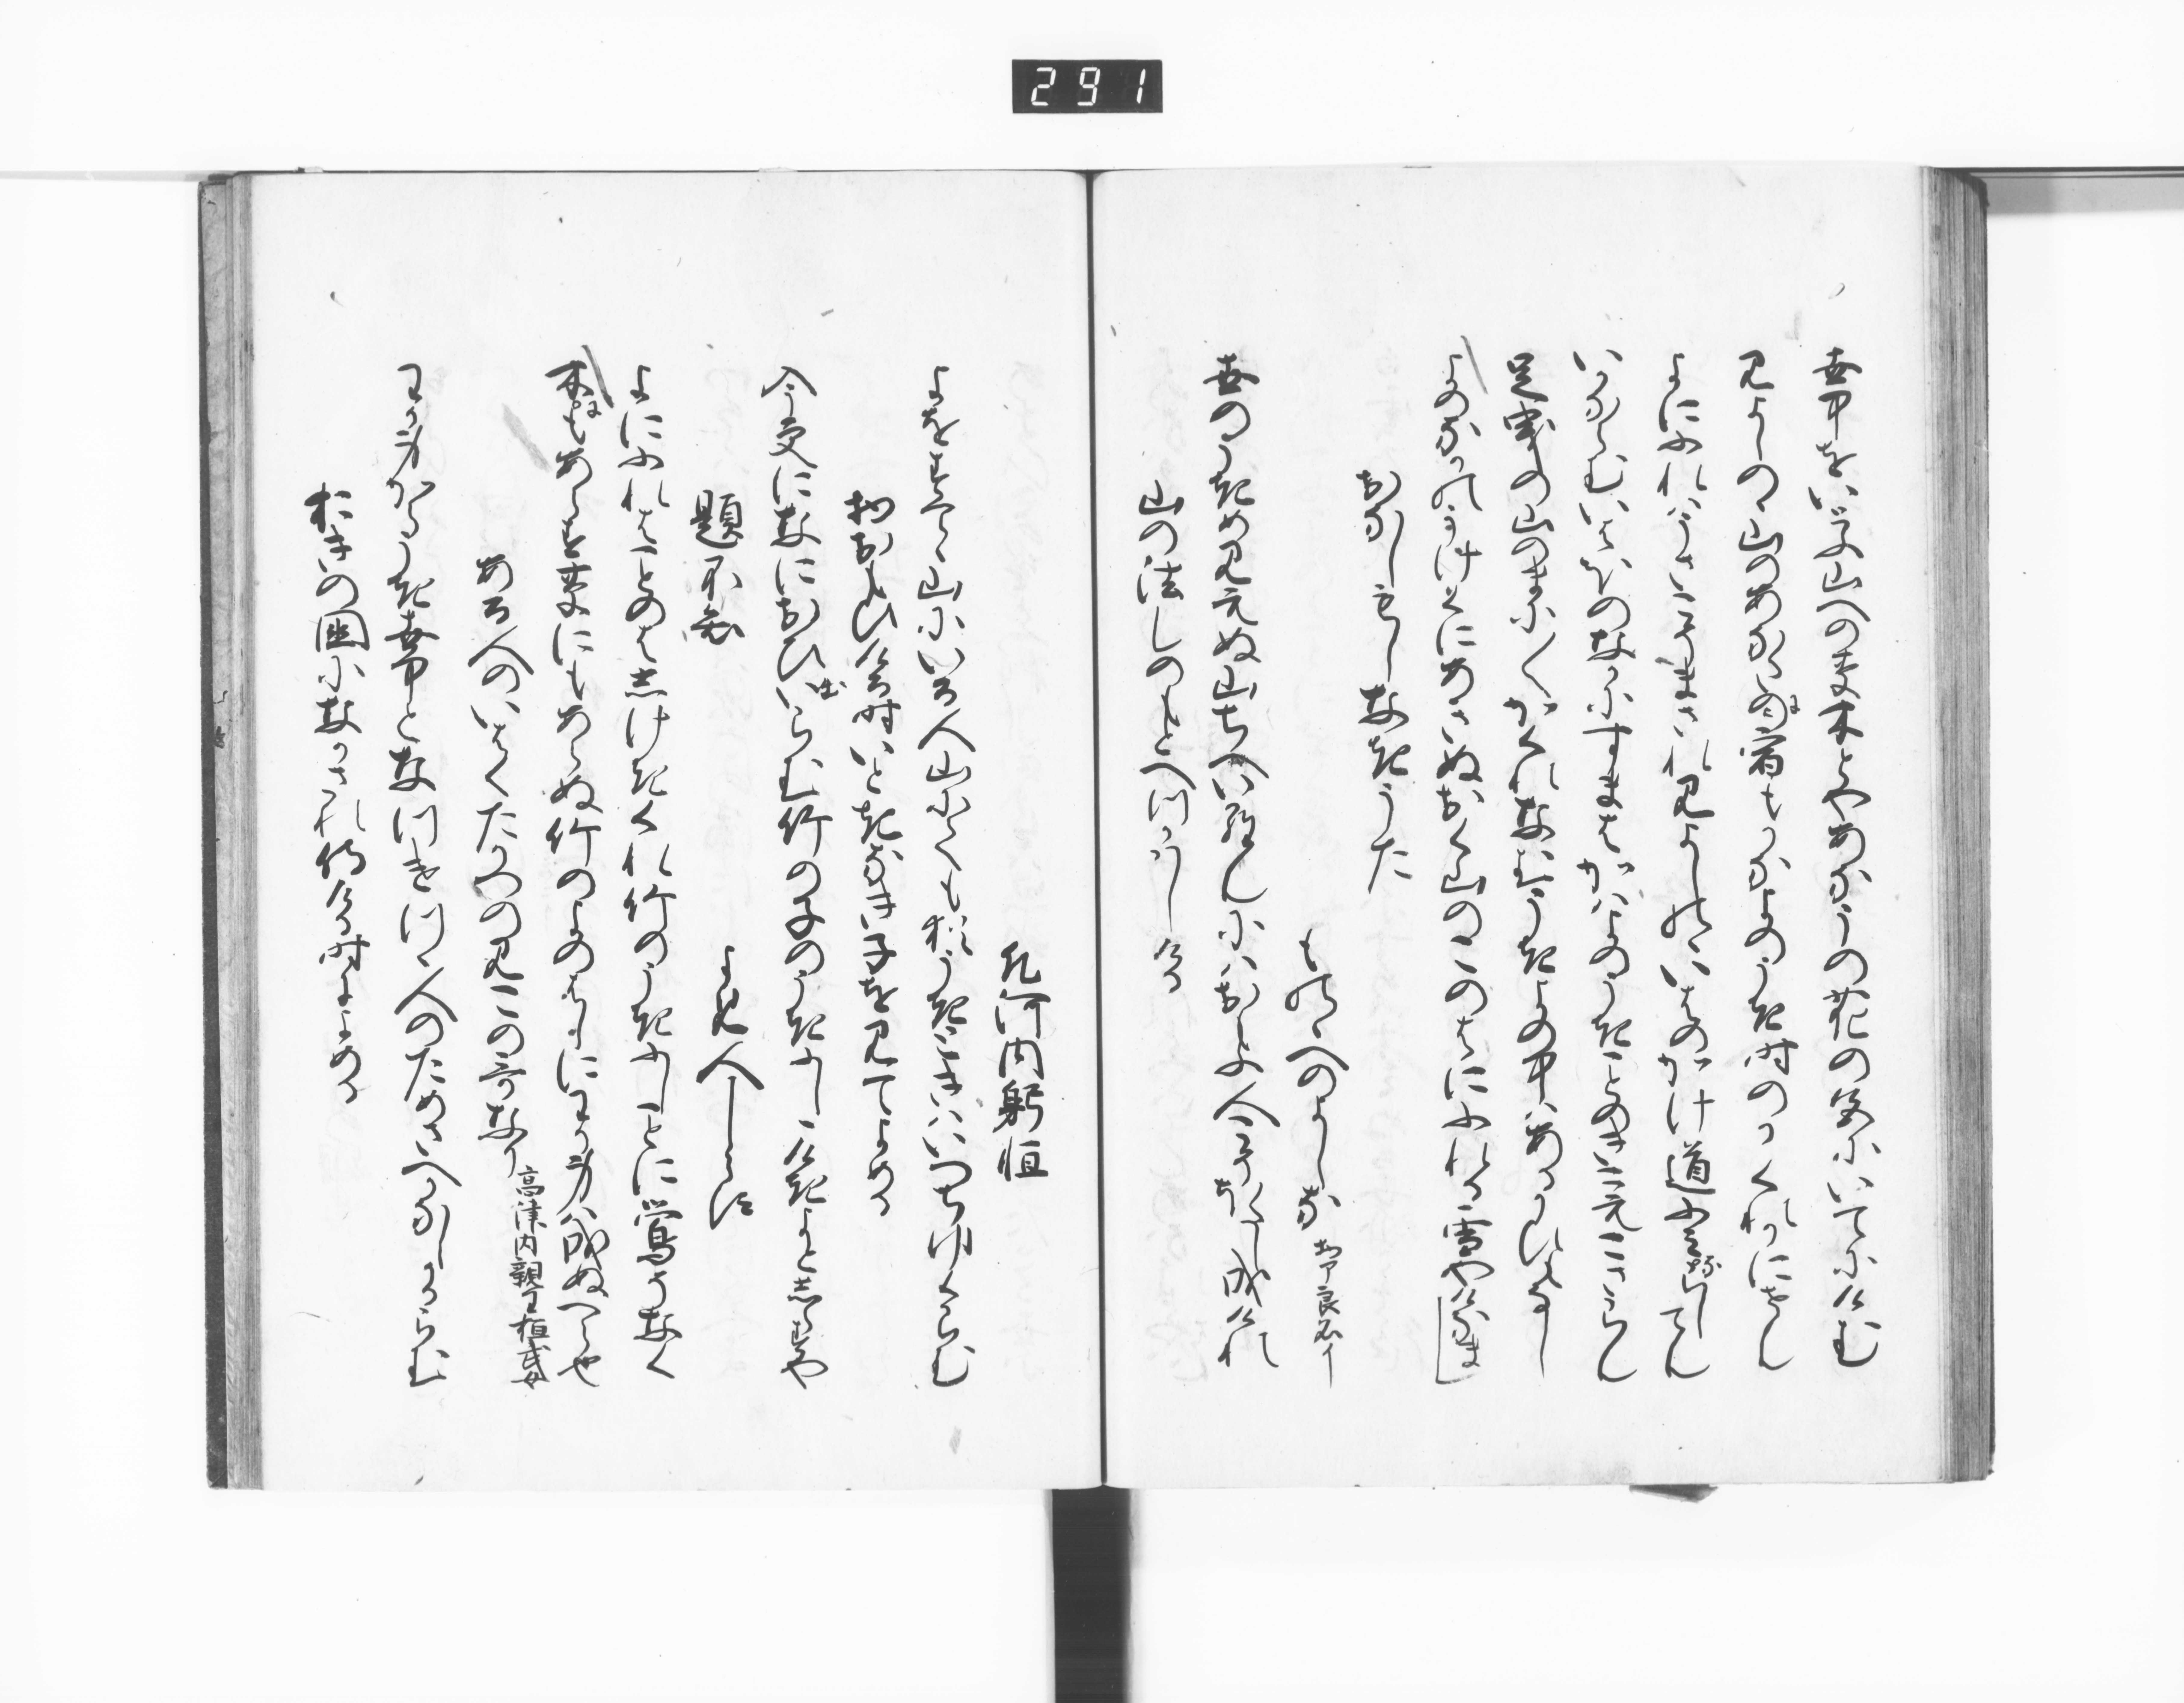 291
世中をいとふ山への草木とやあなうの花の色にいてにけむ
見よしのゝ山のあなたに宿もかなよのうき時のかくれかにせん
よにふれはうさこそまされ見よしのゝいはのかけ道ふみならしてん
いかならむいはほの中にすまはかはよのうきことのきこえこさらん
足曳の山のまに〱かくれなむうき世の中はあるかひもなし
よのなかのうけくにあきぬおく山のこのはにふれる雪やけなまし
おなしもしなきうた
ものゝへのよしな
世のうきめ見えぬ山ちへいらんにはおもふ人こそほたし成けれ
山の法しのもとへつかはしける
凡河内躬恒
よをすてゝ山にいる人山にても猶うき時はいつちゆくらむ
物おもひける時いときなき子を見てよめる
今更になにおひいつらむ竹の子のうきふししけきよとはしらすや
題不知
よみ人しらす
よにふれはことのはしけきくれ竹のうきふしことに鶯そなく
木にもあらす草にもあらぬ竹のよのはしにわか身は成ぬへら也
ある人のいはくたかつの見この哥なり
高津内親王桓武女
わか身からうき世中と名つけつゝ人のためさへかなしかるらむ
おきの国になかされ侍ける時によめる